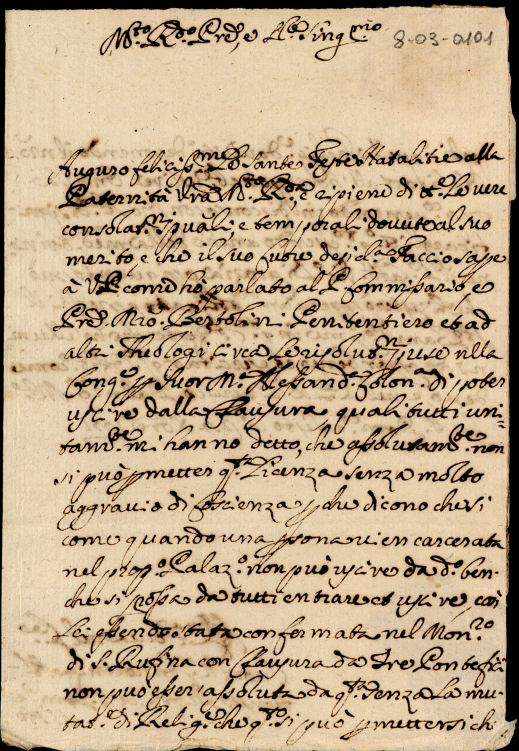 M.to R.do Pre, e P.rõn Sing.mo
8-03-0101
Auguro feliciss.me le Sante feste Natalitie alla
Paternità Vrã M.to R.da e ripiene di tt.e le vere
consolat.ni spuali, e temporali dovute al suo
merito, e che il suo cuore desid.a Faccio sape
à V.P. come hò parlato al P. Commissario, e
Pre. Mrõ. Bertolini Penitentiero et ad
altri Theologi circa le risolut.ni prese nella
Cong.e p Suor M.a Alessand.a Colon.a di poter
uscire dalla Clausura quali tutti uni=
tam.te mi hanno detto, che assolutam.te non
si può pmetter q.ta Licenza senza molto
aggravio di Coscienza pche dicono che si
come quando una psona vien carcerata
nel prop.o Palaz.o non può uscire da d.o ben-
che si possa da tutti entrare et uscire, così
lei essendo stata confermata nel Mon.ro
di S. Rufina con Clausura da tre Pontefici
non può esser assoluta da q.ta senza la mu-
tat.ne di Relig.e che q.to si può pmettersi ch